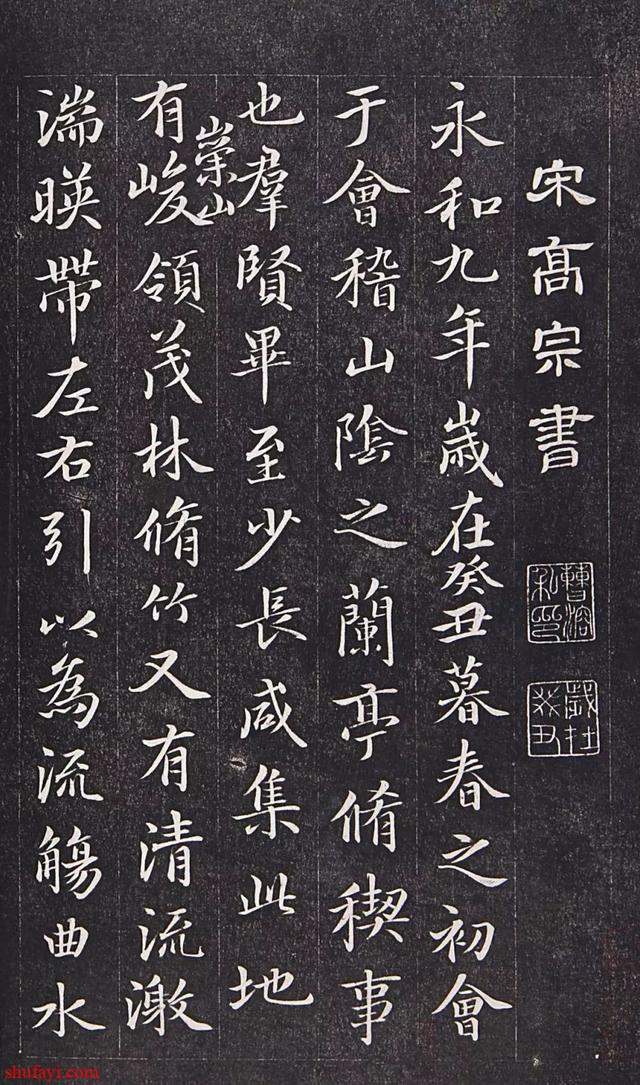 宋髙宗書
曹溶私印
歲在癸丑
永和九年歲在癸丑暮春之初會
于會稽山陰之蘭亭脩稧事
也羣賢畢至少長咸集此地
有崇山峻領茂林脩竹又有清流激
湍暎帶左右引以為流觴曲水
shufayi.com